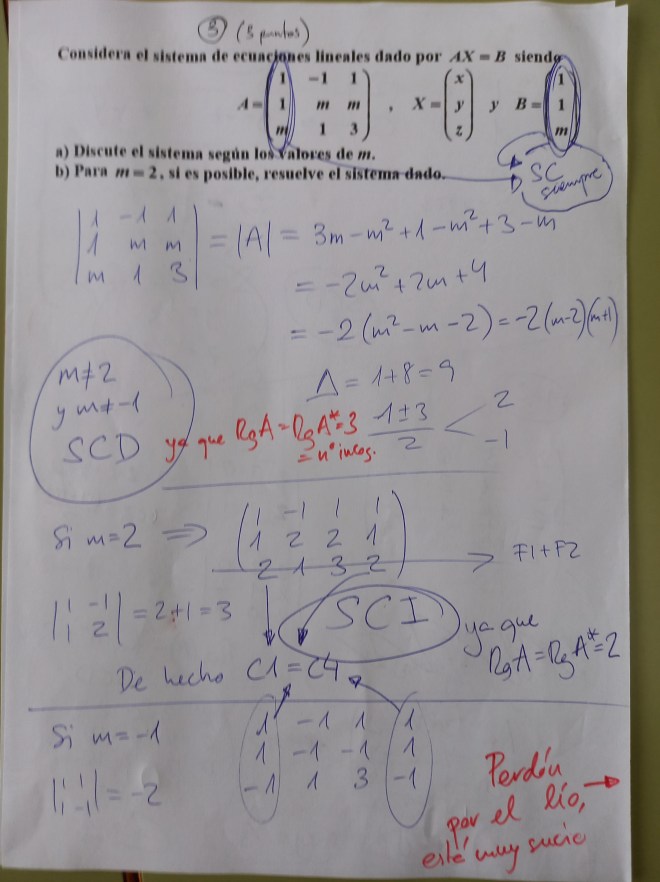 ③ (5 puntos)
Considera el sistema de ecuaciones lineales dado por AX = B siendo
A = (1 -1 1 / 1 m m / m 1 3) , X = (x / y / z) y B = (1 / 1 / m)
a) Discute el sistema según los valores de m.
b) Para m = 2, si es posible, resuelve el sistema dado.
SC
siempre
|1 -1 1 / 1 m m / m 1 3| = |A| = 3m - m² + 1 - m² + 3 - m
= -2m² + 2m + 4
= -2(m² - m - 2) = -2(m-2)(m+1)
Δ = 1+8 = 9
(1±3)/2 < 2 / -1
m ≠ 2
y m ≠ -1
SCD
ya que RgA = RgA* = 3
= nº incog.
Si m = 2 ⇒ (1 -1 1 1 / 1 2 2 1 / 2 1 3 2) → F1+F2
|1 -1 / 1 2| = 2+1 = 3
SCI
ya que
RgA = RgA* = 2
De hecho C1 = C4
Si m = -1
1 -1 1 1
1 -1 -1 1
-1 1 3 -1
|1 1 / 1 -1| = -2
Perdón →
por el lío,
está muy sucio